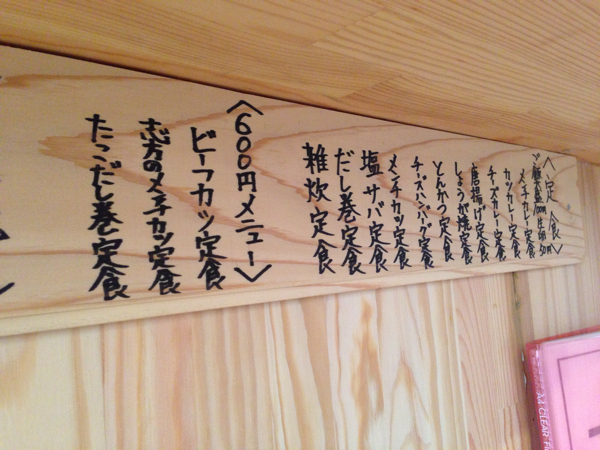 〈定食〉
メンチカレー定食
カツカレー定食
チーズカレー定食
唐揚げ定食
しょうが焼定食
とんかつ定食
チーズハンバーグ定食
メンチカツ定食
塩サバ定食
だし巻定食
雑炊定食
〈600円メニュー〉
ビーフカツ定食
志方のメンチカツ定食
たこだし巻定食
A4 CLEAR